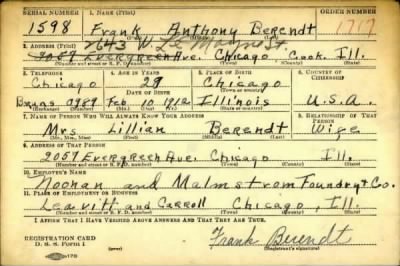 SERIAL NUMBER 1. NAME (Print) ORDER NUMBER
1598 Frank Anthony Berendt 1717
2643 W. Le Moyne St.
2. ADDRESS (Print)
2057 Evergreen Ave. Chicago, Cook, Ill.
(Number and street or R. F. D. number) (Town) (County) (State)
3. TELEPHONE 4. AGE IN YEARS 5. PLACE OF BIRTH 6. COUNTRY OF CITIZENSHIP
Chicago 29 Chicago
DATE OF BIRTH (Town or county)
Bruns 0989 Feb 10 1912 Illinois U.S.A.
(Exchange) (Number) (Mo.) (Day) (Yr.) (State or country)
7. NAME OF PERSON WHO WILL ALWAYS KNOW YOUR ADDRESS 8. RELATIONSHIP OF THAT PERSON
Mrs Lillian Berendt Wife
(Mr., Mrs., Miss) (First) (Middle) (Last)
9. ADDRESS OF THAT PERSON
2057 Evergreen Ave. Chicago Ill.
(Number and street or R. F. D. number) (Town) (County) (State)
10. EMPLOYER'S NAME
Noonan and Malmstrom Foundry & Co.
11. PLACE OF EMPLOYMENT OR BUSINESS
Leavitt and Carroll Chicago, Ill.
(Number and street or R. F. D. number) (Town) (County) (State)
I AFFIRM THAT I HAVE VERIFIED ABOVE ANSWERS AND THAT THEY ARE TRUE.
REGISTRATION CARD
D. S. S. Form 1
Frank Berendt
(Registrant's signature)